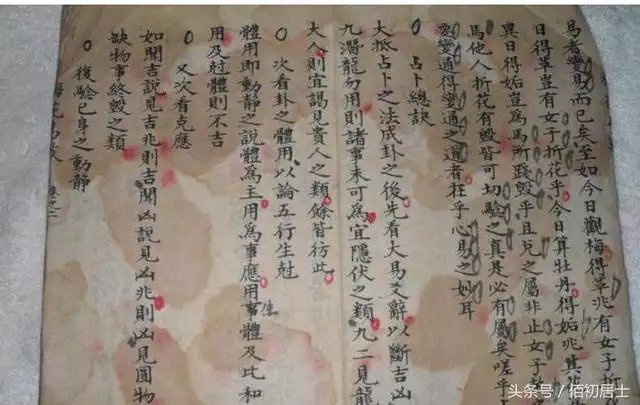 易者變易而已矣至如今日觀梅得革兆有女子折
日得革豈有女子折花乎今日算牡丹得姤兆其
異日得姤豈為馬所踐毀乎且兌之屬非止女子
馬他人折花有毀皆可切驗之真是必有屬矣嗟乎
變通得變通之道者在乎心易之妙耳
〇占卜總訣
大抵占卜之法成卦之後先看大爻辭以斷吉凶
九潛龍勿用則諸事未可為宜隱伏之類九二見龍
大人則宜謁見貴人之類餘皆彷此
〇次看卦之體用以論五行生尅
體用即動靜之說體為主用為事應用事生體及比和
用及尅體則不吉
〇又次看克應
如聞吉說見吉兆則吉聞凶說見凶兆則凶見圓物
缺物事終毀之類
〇後驗已身之動靜
头条号/佰初居士